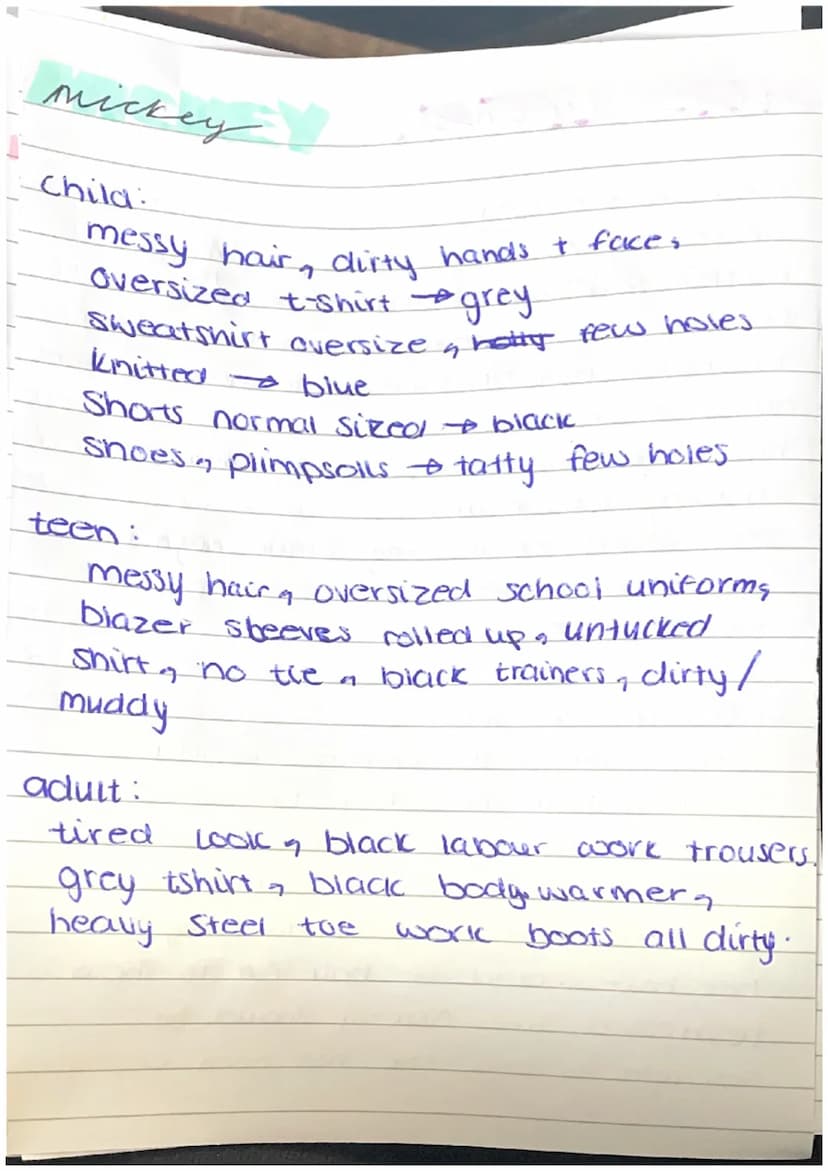 mickey
child:
messy hair, dirty hands + face,
oversized t-shirt → grey
sweatshirt oversize, holly few holes
knitted → blue
Shorts normal sized → black
shoes, plimpsolls → tatty few holes
teen:
messy hair, oversized school uniform,
blazer sleeves rolled up, untucked
shirt, no tie, black trainers, dirty/
muddy
adult:
tired look, black labour work trousers
grey tshirt, black body warmer,
heavy steel toe work boots all dirty.